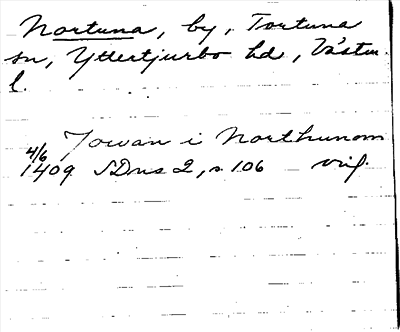 Nortuna, by, Tortuna
sn, Yttertjurbo hd, Västm.
l.
Jowan i Northunom
4/6
1409 SDns 2, s. 106 orig.